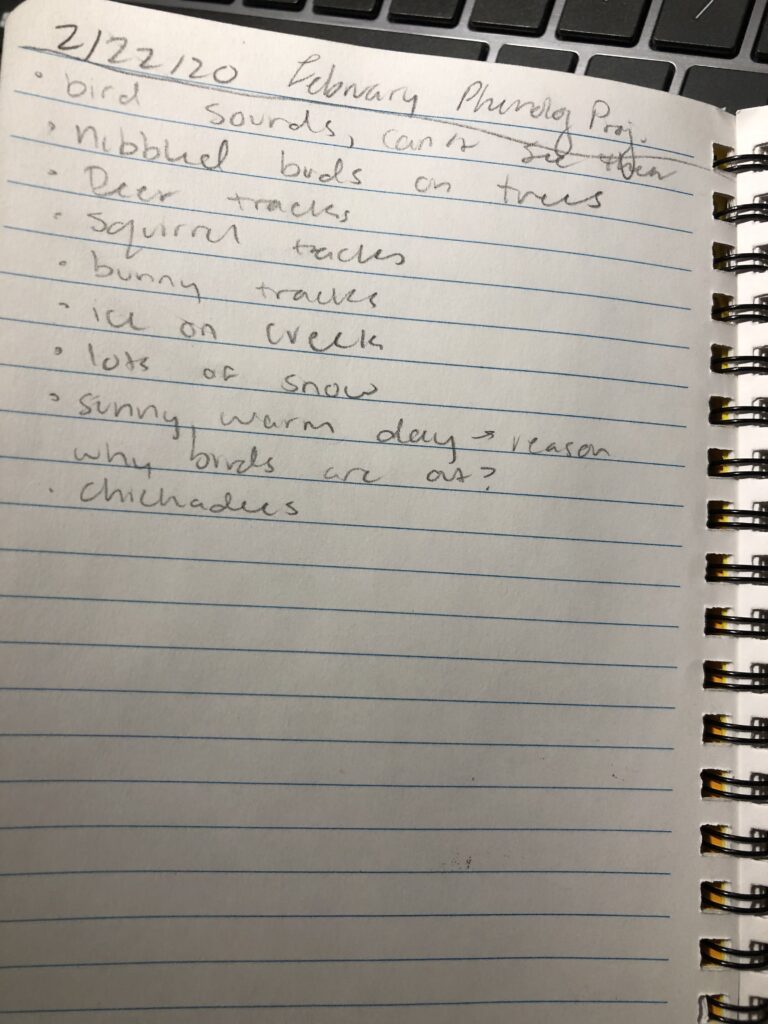 2/22/20 February Phenolog Proj.
• bird sounds, can't see them
• nibbled buds on trees
• Deer tracks
• squirrel tracks
• bunny tracks
• ice on creek
• lots of snow
• sunny, warm day → reason
why birds are out?
• chickadees